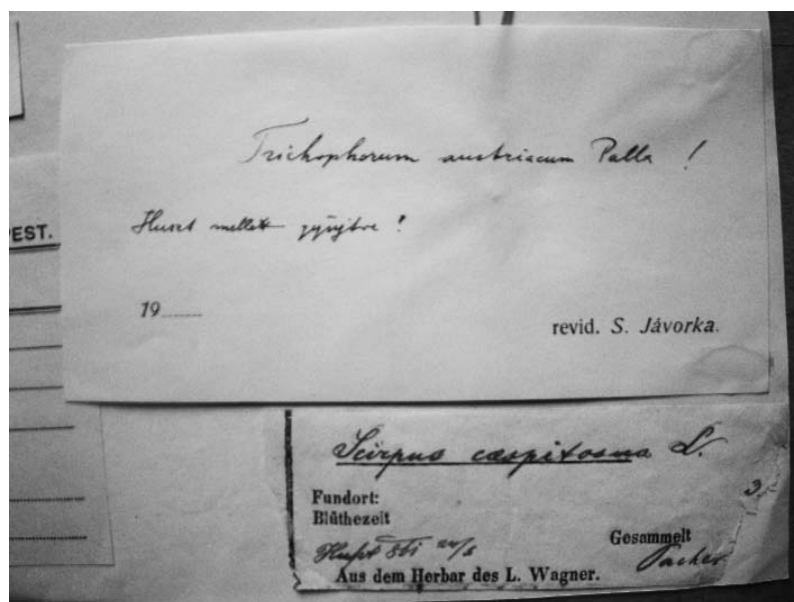 Trichophorum austriacum Palla !
Huszt mellett gyűjtve !
PEST.
19
revid. S. Jávorka.
Scirpus cæspitosus L.
3.
Fundort:
Blüthezeit
Gesammelt
Aus dem Herbar des L. Wagner.